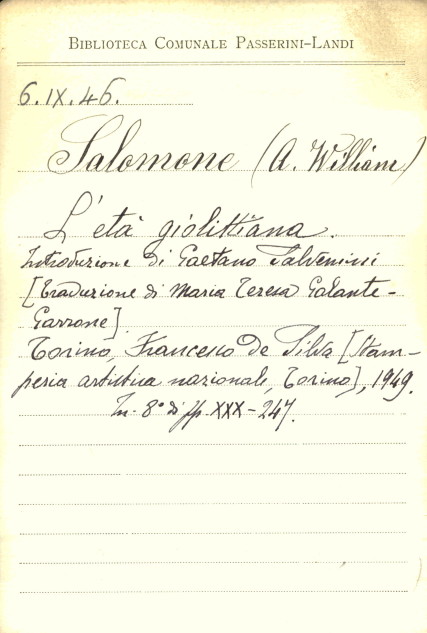 BIBLIOTECA COMUNALE PASSERINI-LANDI
6.IX.46.
Salomone (A. William)
L'età giolittiana.
Introduzione di Gaetano Salvemini
[Traduzione di Maria Teresa Galante-
Garrone].
Torino, Francesco de Silva [Stam-
peria artistica nazionale, Torino], 1949.
In-8° di pp. XXX-247.